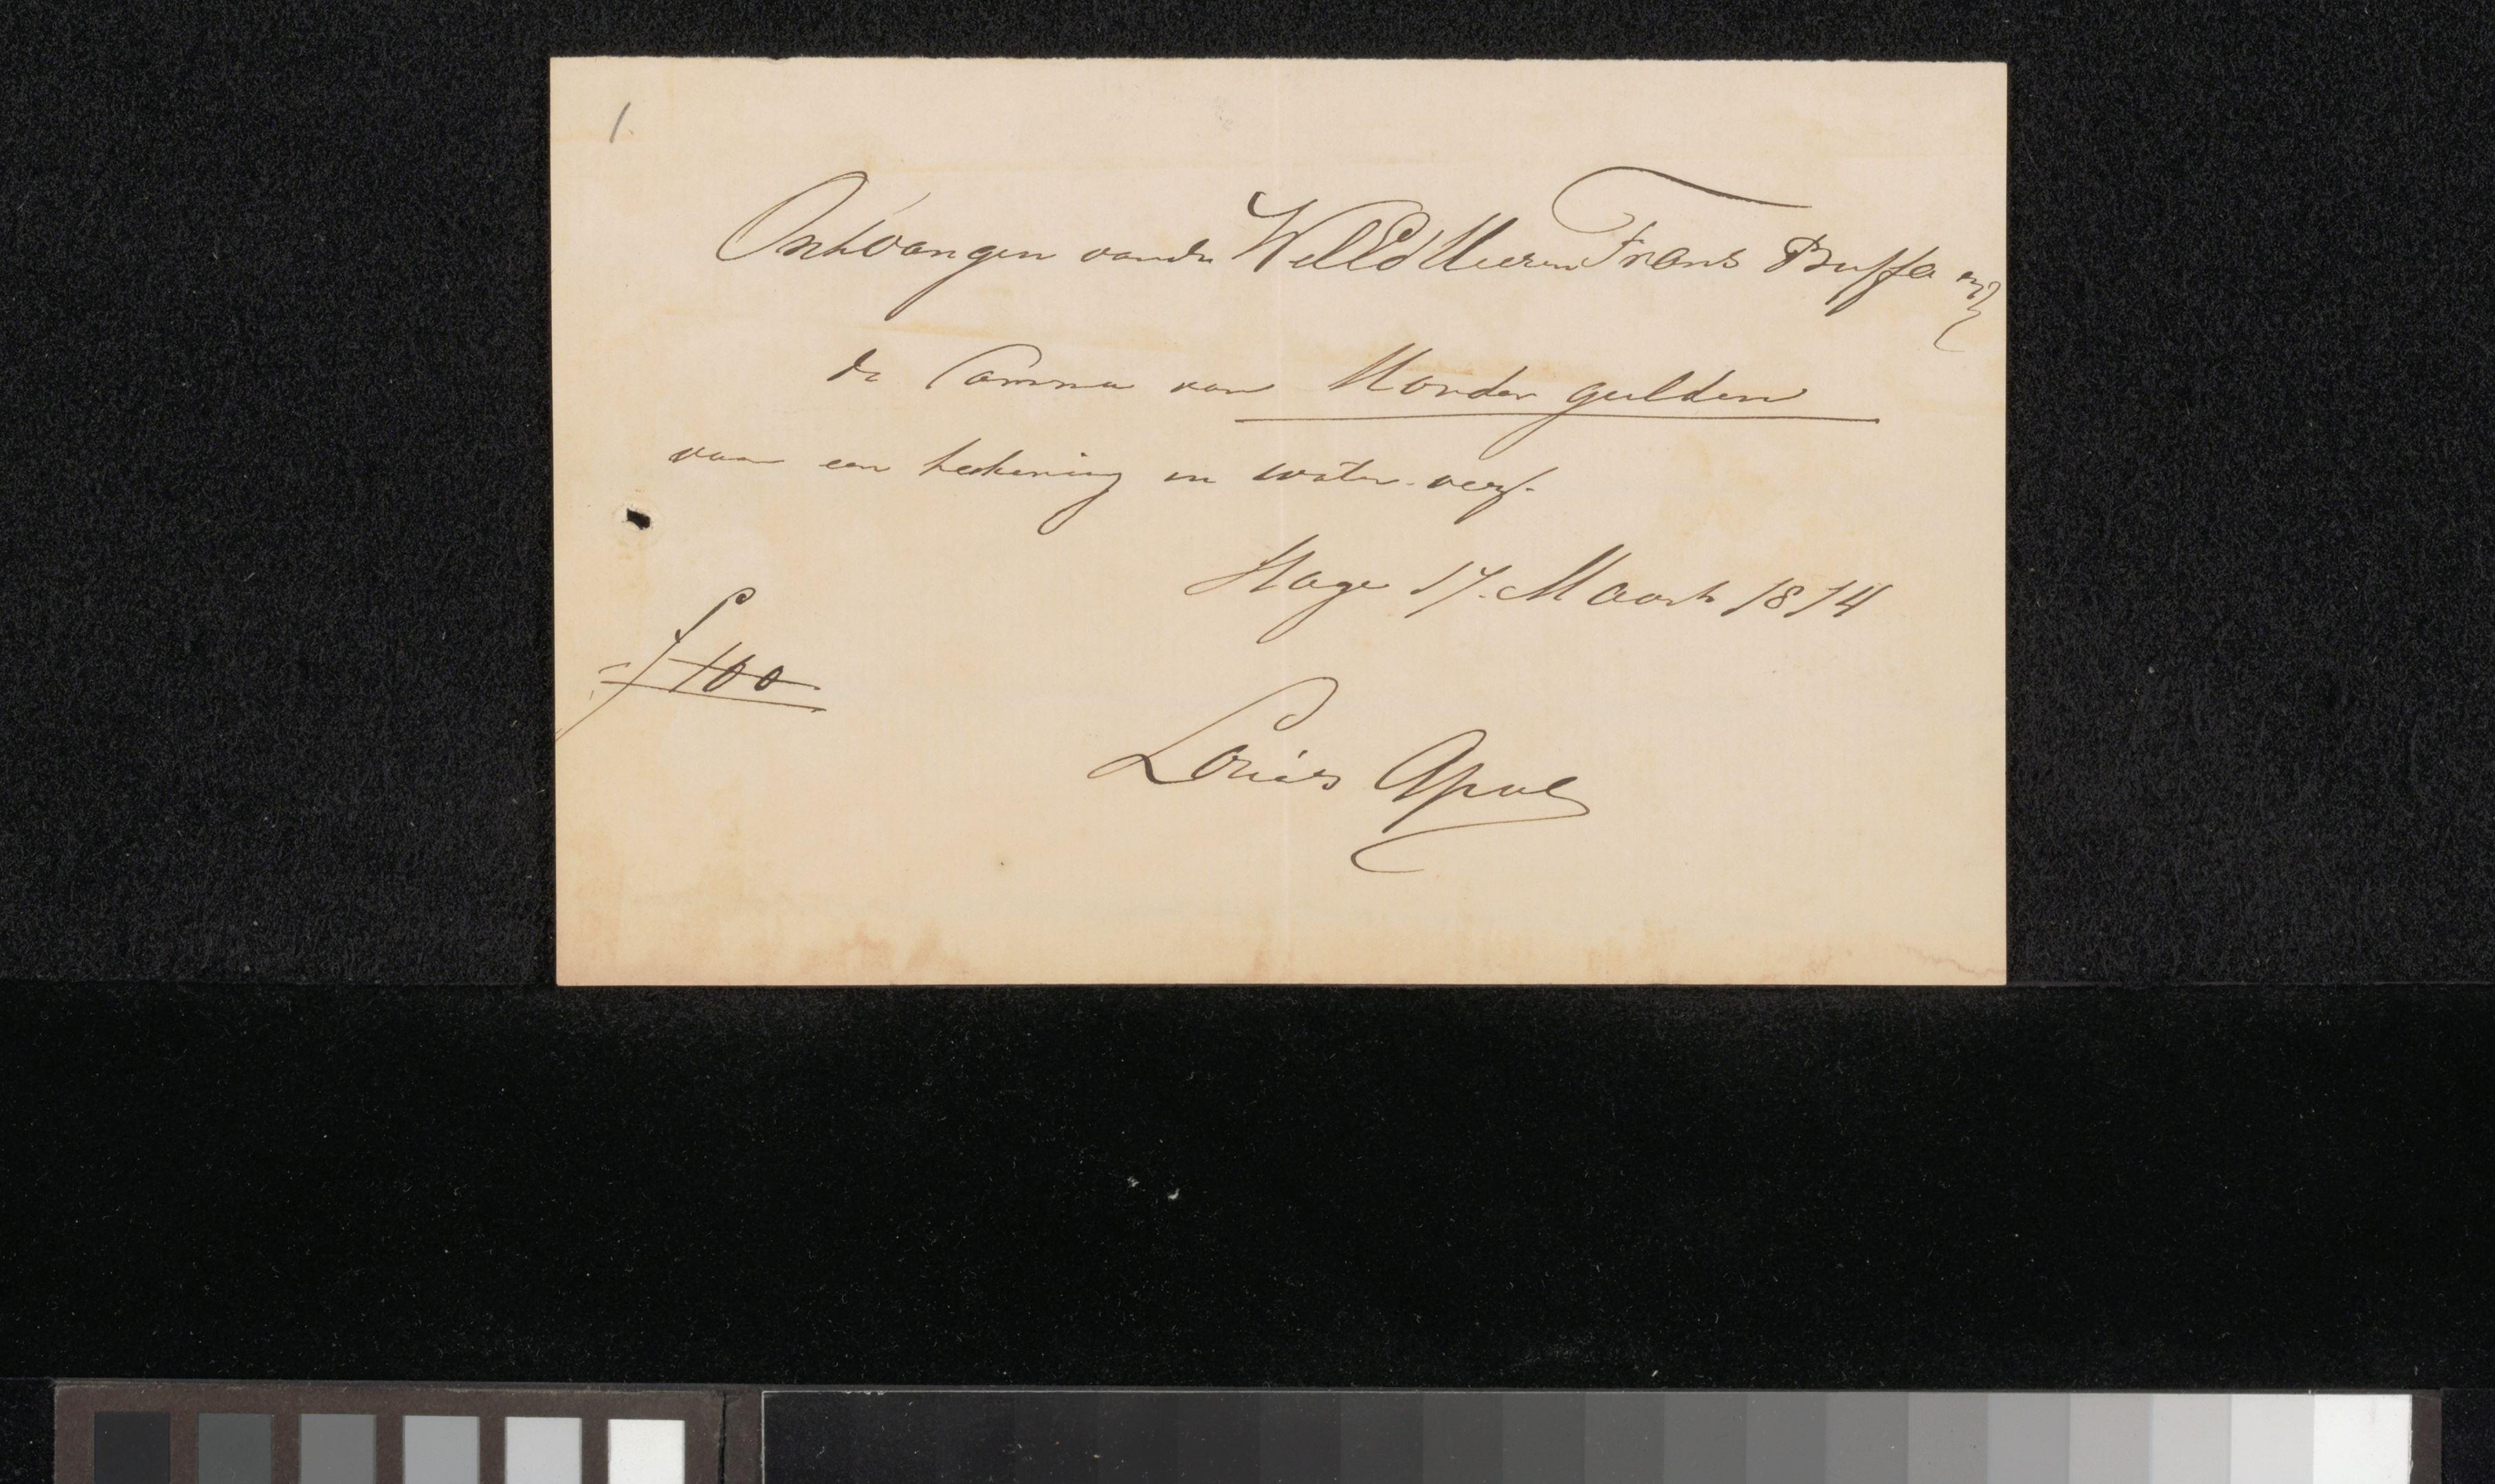 1.
Ontvangen van de WelEd Heeren Frans Buffa en Z
de Somma van Honder gulden
voor een teekening in water-verf.
Hage 17. Maart 1874
f 100
Louis Apol